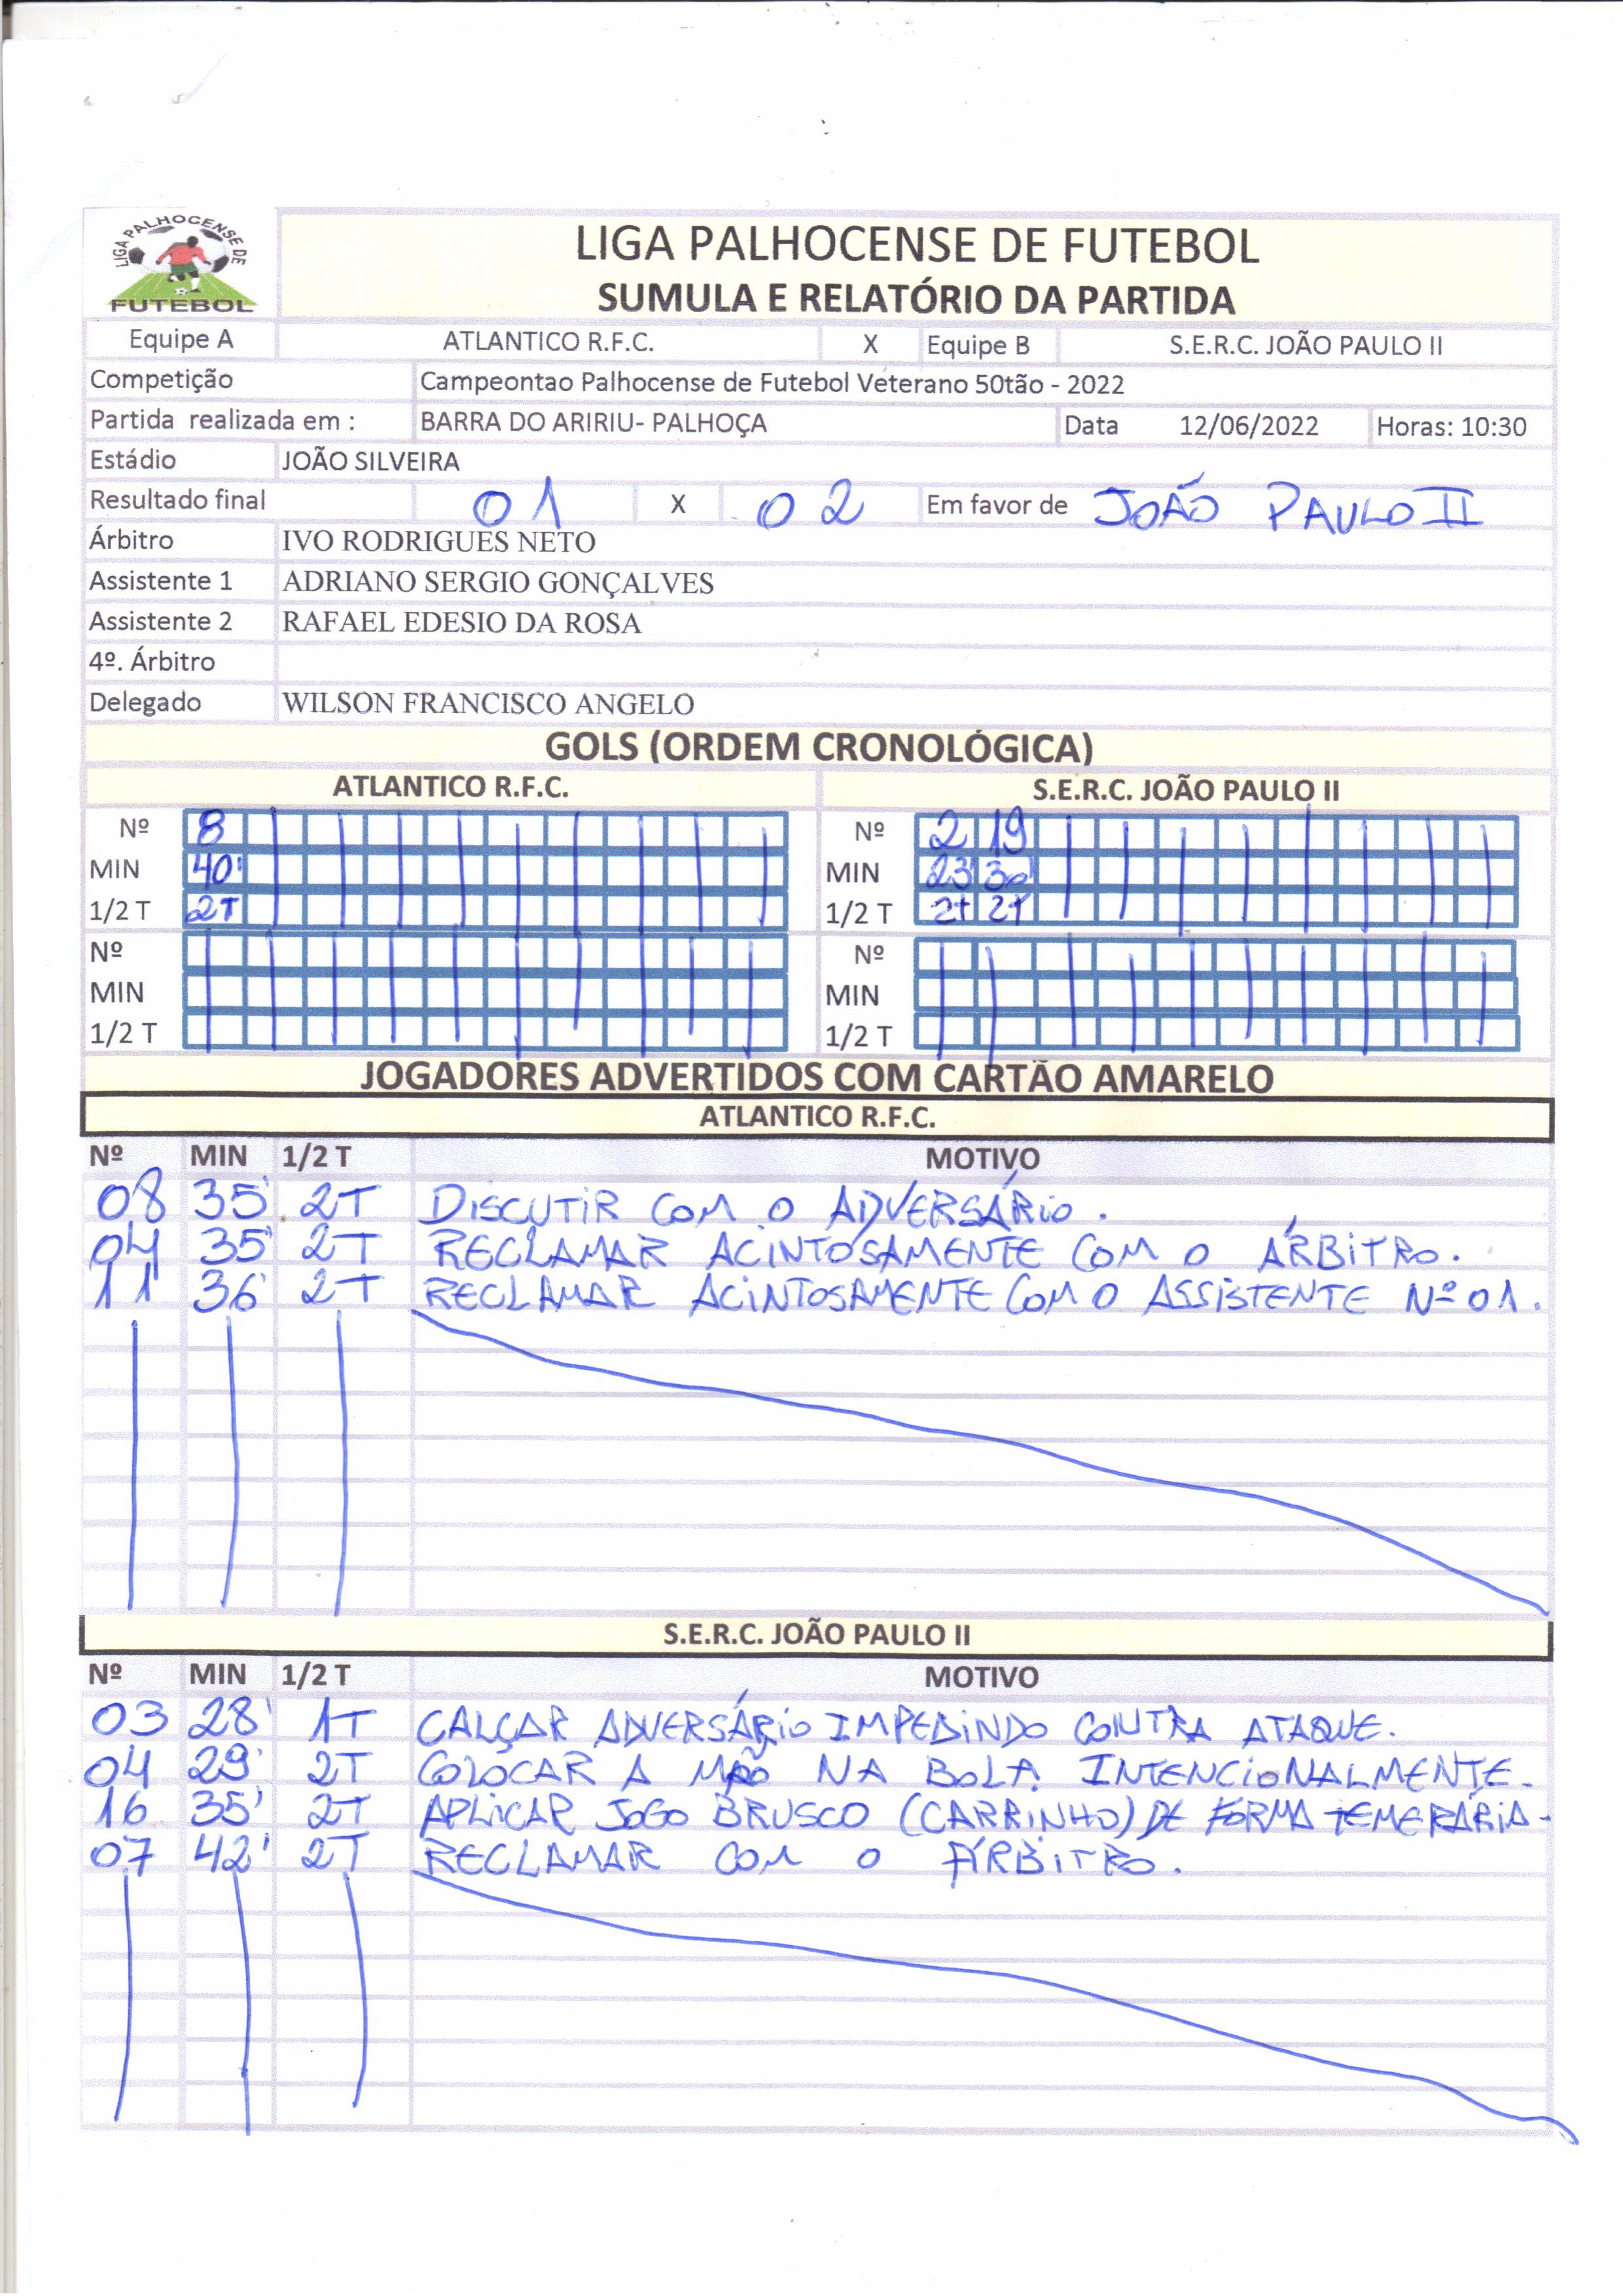 LIGA PALHOCENSE DE
FUTEBOL
LIGA PALHOCENSE DE FUTEBOL
SUMULA E RELATÓRIO DA PARTIDA
Equipe A ATLANTICO R.F.C. X Equipe B S.E.R.C. JOÃO PAULO II
Competição Campeontao Palhocense de Futebol Veterano 50tão - 2022
Partida realizada em : BARRA DO ARIRIU- PALHOÇA Data 12/06/2022 Horas: 10:30
Estádio JOÃO SILVEIRA
Resultado final 01 X 02 Em favor de JOÃO PAULO II
Árbitro IVO RODRIGUES NETO
Assistente 1 ADRIANO SERGIO GONÇALVES
Assistente 2 RAFAEL EDESIO DA ROSA
4º. Árbitro
Delegado WILSON FRANCISCO ANGELO
GOLS (ORDEM CRONOLÓGICA)
ATLANTICO R.F.C. S.E.R.C. JOÃO PAULO II
Nº 8 Nº 2 19
MIN 40' MIN 23' 30'
1/2 T 2T 1/2 T 2T 2T
Nº Nº
MIN MIN
1/2 T 1/2 T
JOGADORES ADVERTIDOS COM CARTÃO AMARELO
ATLANTICO R.F.C.
Nº MIN 1/2 T MOTIVO
08 35' 2T DISCUTIR COM O ADVERSÁRIO.
04 35' 2T RECLAMAR ACINTOSAMENTE COM O ÁRBITRO.
11 36' 2T RECLAMAR ACINTOSAMENTE COM O ASSISTENTE Nº 01.
S.E.R.C. JOÃO PAULO II
Nº MIN 1/2 T MOTIVO
03 28' 1T CALÇAR ADVERSÁRIO IMPEDINDO CONTRA ATAQUE.
04 29' 2T COLOCAR A MÃO NA BOLA INTENCIONALMENTE.
16 35' 2T APLICAR JOGO BRUSCO (CARRINHO) DE FORMA TEMERÁRIA.
07 42' 2T RECLAMAR COM O ÁRBITRO.